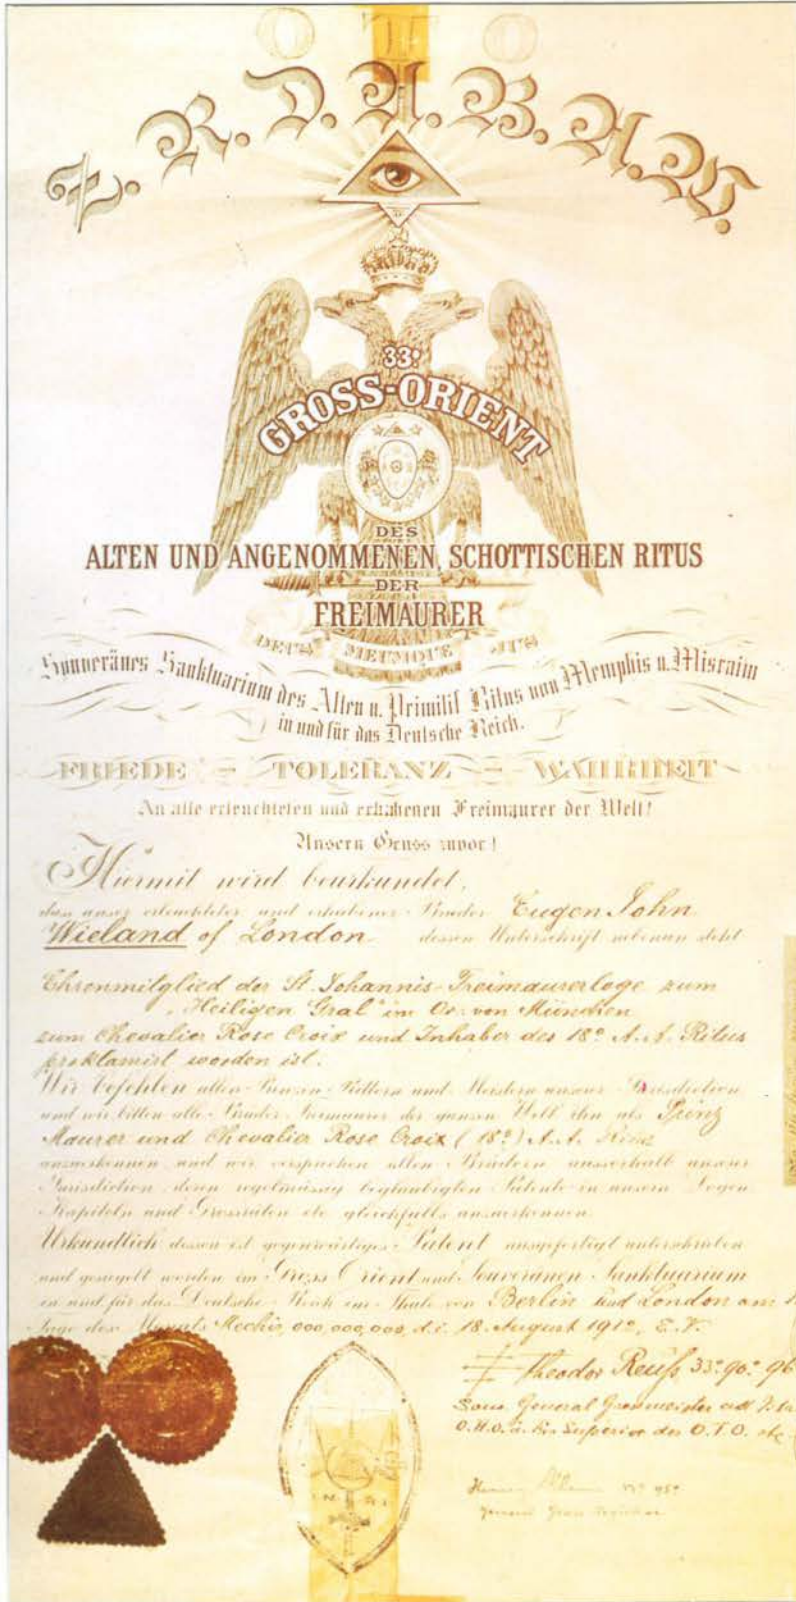 O T O
Z. R. D. A. B. A. W.
33°
GROSS-ORIENT
DES
ALTEN UND ANGENOMMENEN, SCHOTTISCHEN RITUS
DER
FREIMAURER
DEUS MEUMQUE JUS
Souveränes Sanktuarium des Alten u. Primitif Ritus von Memphis u. Misraim
in und für das Deutsche Reich.
FRIEDE - TOLERANZ - WAHRHEIT
An alle erleuchteten und erhabenen Freimaurer der Welt!
Unsern Gruss zuvor!
Hiermit wird beurkundet,
dass unser erleuchteter und erhabener Bruder Eugen John
Wieland of London dessen Unterschrift nebenan steht
Ehrenmitglied der St. Johannis-Freimaurerloge zum
"Heiligen Gral" im Or. von München
zum Chevalier Rose Croix und Inhaber des 18° A. A. Ritus
proklamirt worden ist.
Wir befehlen allen Rittern und Meistern unserer Jurisdiction
und wir bitten alle Brüder Freimaurer der ganzen Welt ihn als Prinz
Maurer und Chevalier Rose Croix (18°) A. A. Ritus
anzuerkennen und wir versprechen allen Brüdern ausserhalb unserer
Jurisdiction deren regelmässig beglaubigten Patente in unsern Logen
Kapiteln und Grossräten etc gleichfalls anzuerkennen.
Urkundlich dessen ist gegenwärtiges Patent ausgefertigt unterschrieben
und gesiegelt worden im Gross Orient und Souveränen Sanktuarium
in und für das Deutsche Reich im Thale von Berlin und London am
Tage des Monats Mechir, 000,000,000, d.i. 18. August 1912, E.V.
Theodor Reuss 33° 90° 96
Souv. General Grossmeister ad
O.H.O. u. Superior des O.T.O. etc
I N R I
95°
General Gross